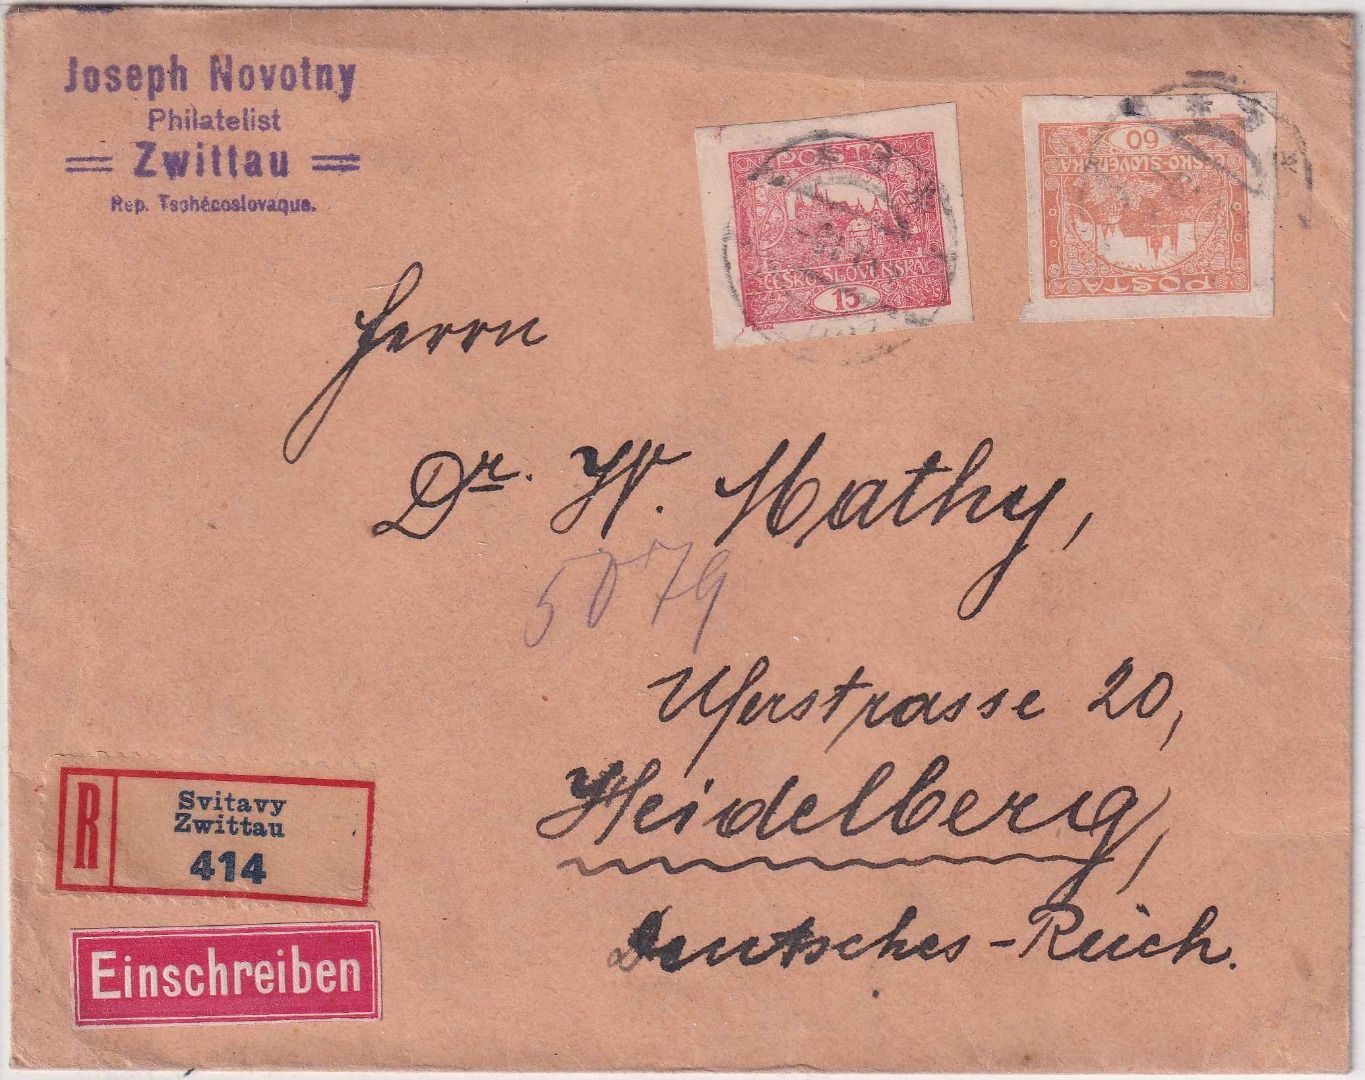 Joseph Novotny
Philatelist
Zwittau
Rep. Tschécoslovaque.
POSTA
ČESKO-SLOVENSKÁ
15
60
ČESKO-SLOVENSKÁ
POSTA
Herrn
Dr. W. Mathy,
5079
Uferstrasse 20,
Heidelberg,
Deutsches-Reich.
R
Svitavy
Zwittau
414
Einschreiben